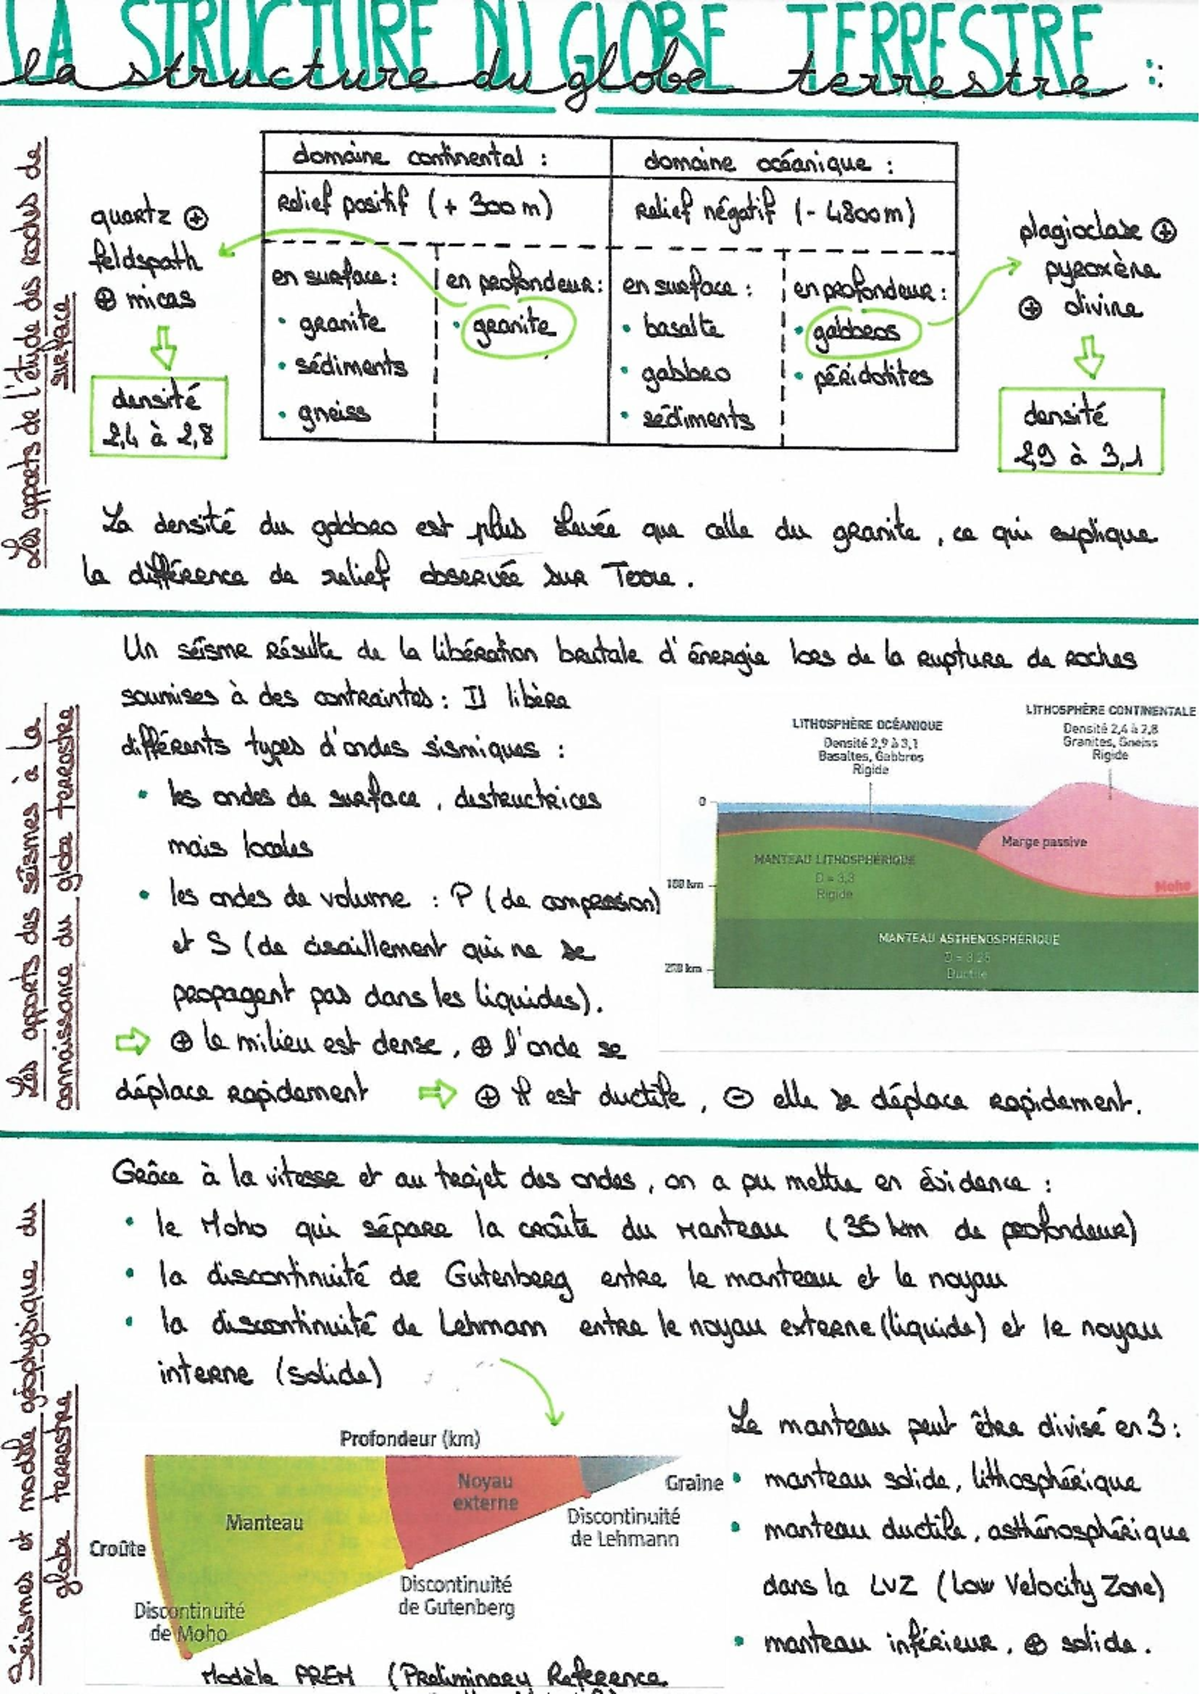 LA STRUCTURE DU GLOBE TERRESTRE
la structure du globe terrestre :
Les apports de l'étude des roches de
surface
domaine continental :
domaine océanique :
relief positif (+ 300m)
relief négatif (- 4800m)
quartz ⊕
feldspath
⊕ micas
densité
2,4 à 2,8
en surface :
• granite
• sédiments
• gneiss
en profondeur :
• granite
en surface :
• basalte
• gabbro
• sédiments
en profondeur :
• gabbros
• péridotites
plagioclase ⊕
pyroxène
⊕ olivine
densité
2,9 à 3,1
La densité du gabbro est plus élevée que celle du granite, ce qui explique
la différence de relief observée sur Terre.
Les apports des séismes à la
connaissance du globe terrestre
Un séisme résulte de la libération brutale d'énergie lors de la rupture de roches
soumises à des contraintes : Il libère
différents types d'ondes sismiques :
• les ondes de surface, destructrices
mais locales
• les ondes de volume : P (de compression)
et S (de cisaillement qui ne se
propagent pas dans les liquides).
⇨ ⊕ le milieu est dense, ⊕ l'onde se
déplace rapidement ⇨ ⊕ il est ductile, ⊖ elle se déplace rapidement.
LITHOSPHÈRE OCÉANIQUE
Densité 2,9 à 3,1
Basaltes, Gabbros
Rigide
LITHOSPHÈRE CONTINENTALE
Densité 2,4 à 2,8
Granites, Gneiss
Rigide
0
Marge passive
MANTEAU LITHOSPHÉRIQUE
D = 3,3
Rigide
100 km
Moho
MANTEAU ASTHENOSPHÉRIQUE
D = 3,25
Ductile
200 km
Séismes et modèle géophysique du
globe terrestre
Grâce à la vitesse et au trajet des ondes, on a pu mettre en évidence :
• le Moho qui sépare la croûte du manteau (35 km de profondeur)
• la discontinuité de Gutenberg entre le manteau et le noyau
• la discontinuité de Lehmann entre le noyau externe (liquide) et le noyau
interne (solide)
Profondeur (km)
Croûte
Manteau
Noyau
externe
Graine
Discontinuité
de Lehmann
Discontinuité
de Gutenberg
Discontinuité
de Moho
Modèle PREM (Preliminary Reference
Le manteau peut être divisé en 3 :
• manteau solide, lithosphérique
• manteau ductile, asthénosphérique
dans la LVZ (Low Velocity Zone)
• manteau inférieur, ⊕ solide.